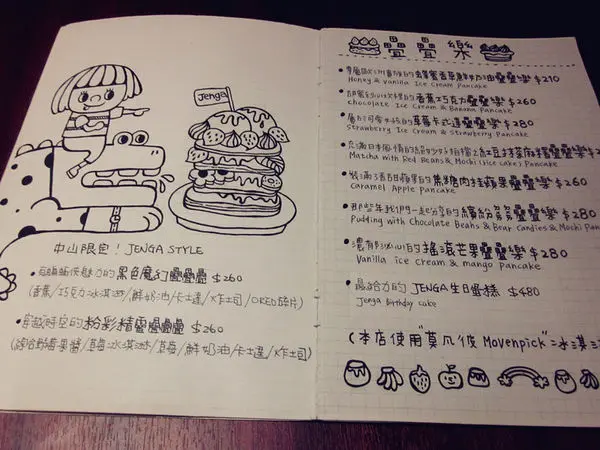 Jenga
中山限定！JENGA STYLE
魅力的黑色魔幻疊疊疊 $260
(香蕉/巧克力冰淇淋/鮮奶油/卡士達/炸土司/OREO碎片)
穿越時空的粉彩精靈疊疊疊 $260
(綜合野莓果醬/草莓冰淇淋/草莓/鮮奶油/卡士達/炸土司)
疊疊樂
香草鮮奶油疊疊樂 $210
Honey & Vanilla Ice Cream Pancake
的香蕉巧克力疊疊樂 $260
Chocolate Ice Cream & Banana Pancake
的草莓卡士達疊疊樂 $280
Strawberry Ice Cream & Strawberry Pancake
充滿日本風情的紅豆抹茶麻糬疊疊樂 $2
Matcha with Red Beans & Mochi (rice cake) Pancake
裝滿了香甜蘋果的焦糖肉桂蘋果疊疊樂 $260
Caramel Apple Pancake
那些年我們一起分享的繽紛多多疊疊樂 $280
Pudding with Chocolate Beans & Bear Candies & Mochi Pan
濃郁的搖滾芒果疊疊樂 $280
Vanilla ice cream & mango Pancake
最給力的 JENGA生日蛋糕 $480
Jenga Birthday cake
(本店使用"莫凡彼 Movenpick"冰淇